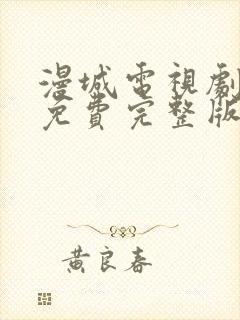 漫城電視劇
免費完整版
黃良春